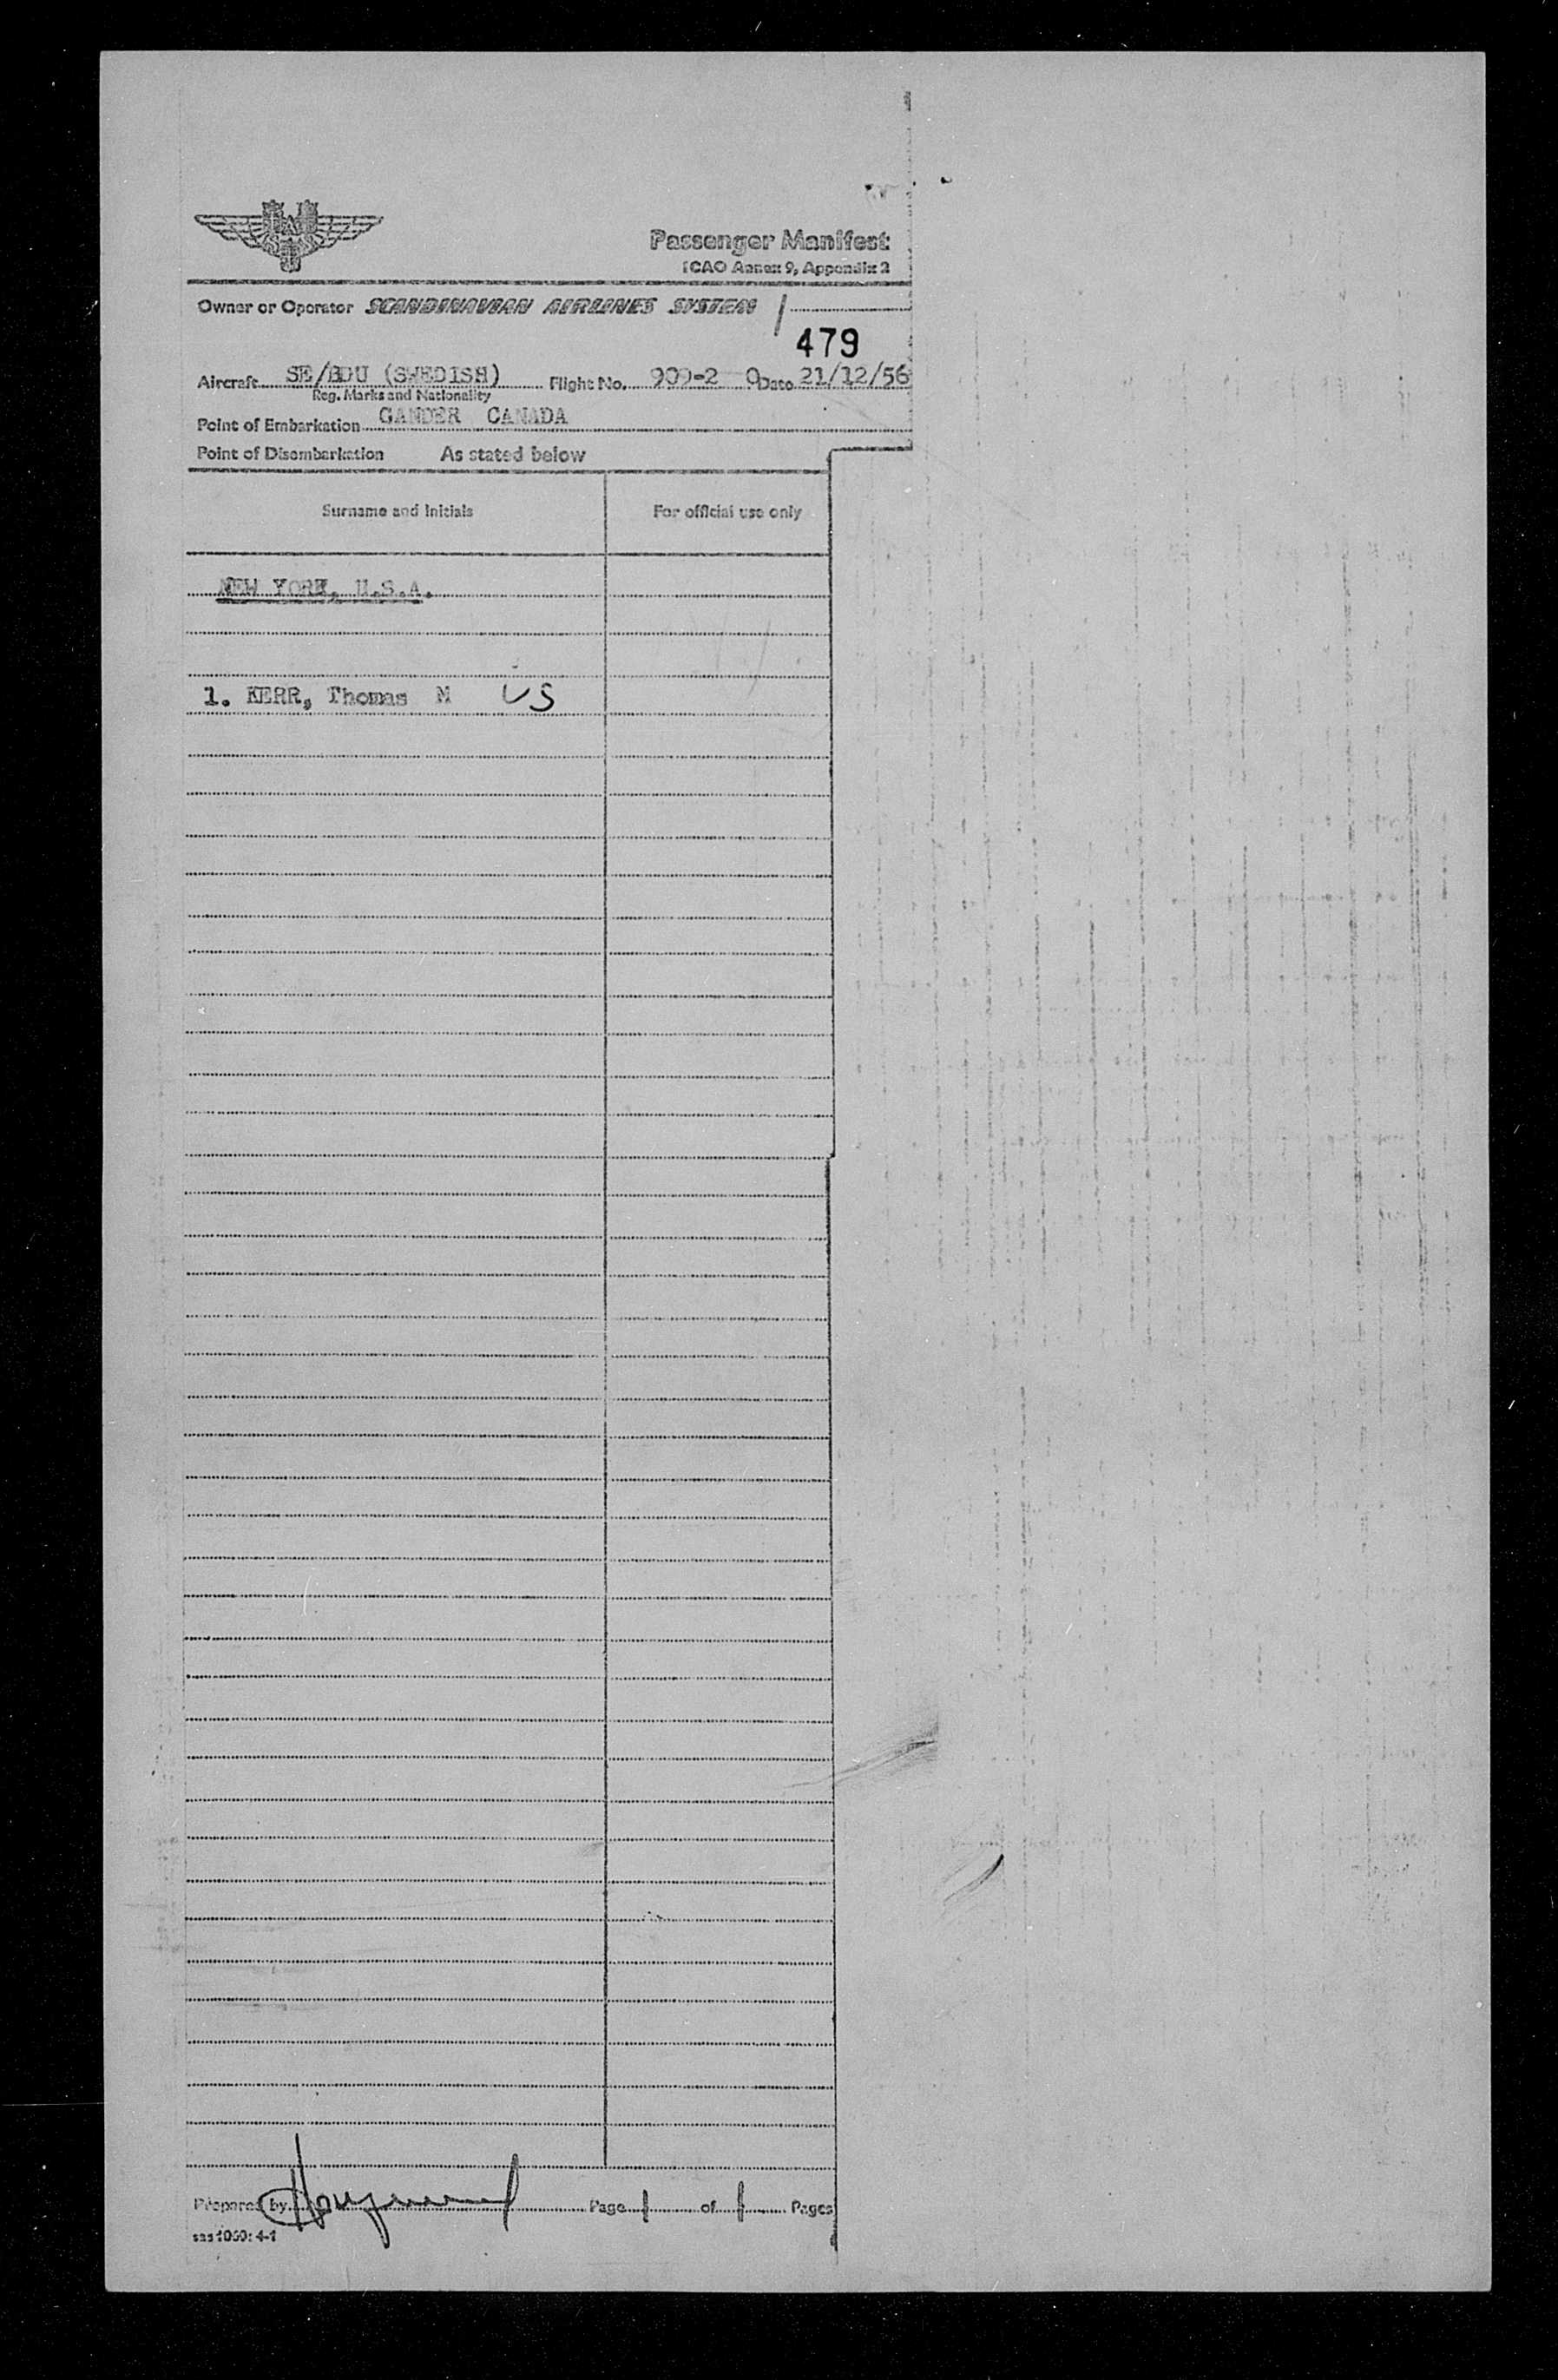 SAS
Passenger Manifest
ICAO Annex 9, Appendix 2
Owner or Operator SCANDINAVIAN AIRLINES SYSTEM
479
Aircraft SE/BDU (SWEDISH) Flight No. 909-2 0 Date 21/12/56
Reg. Marks and Nationality
Point of Embarkation GANDER CANADA
Point of Disembarkation As stated below
Surname and Initials For official use only
NEW YORK, U.S.A.
1. KERR, Thomas M US
Prepared by Page 1 of 1 Pages
sas 1060: 4-1